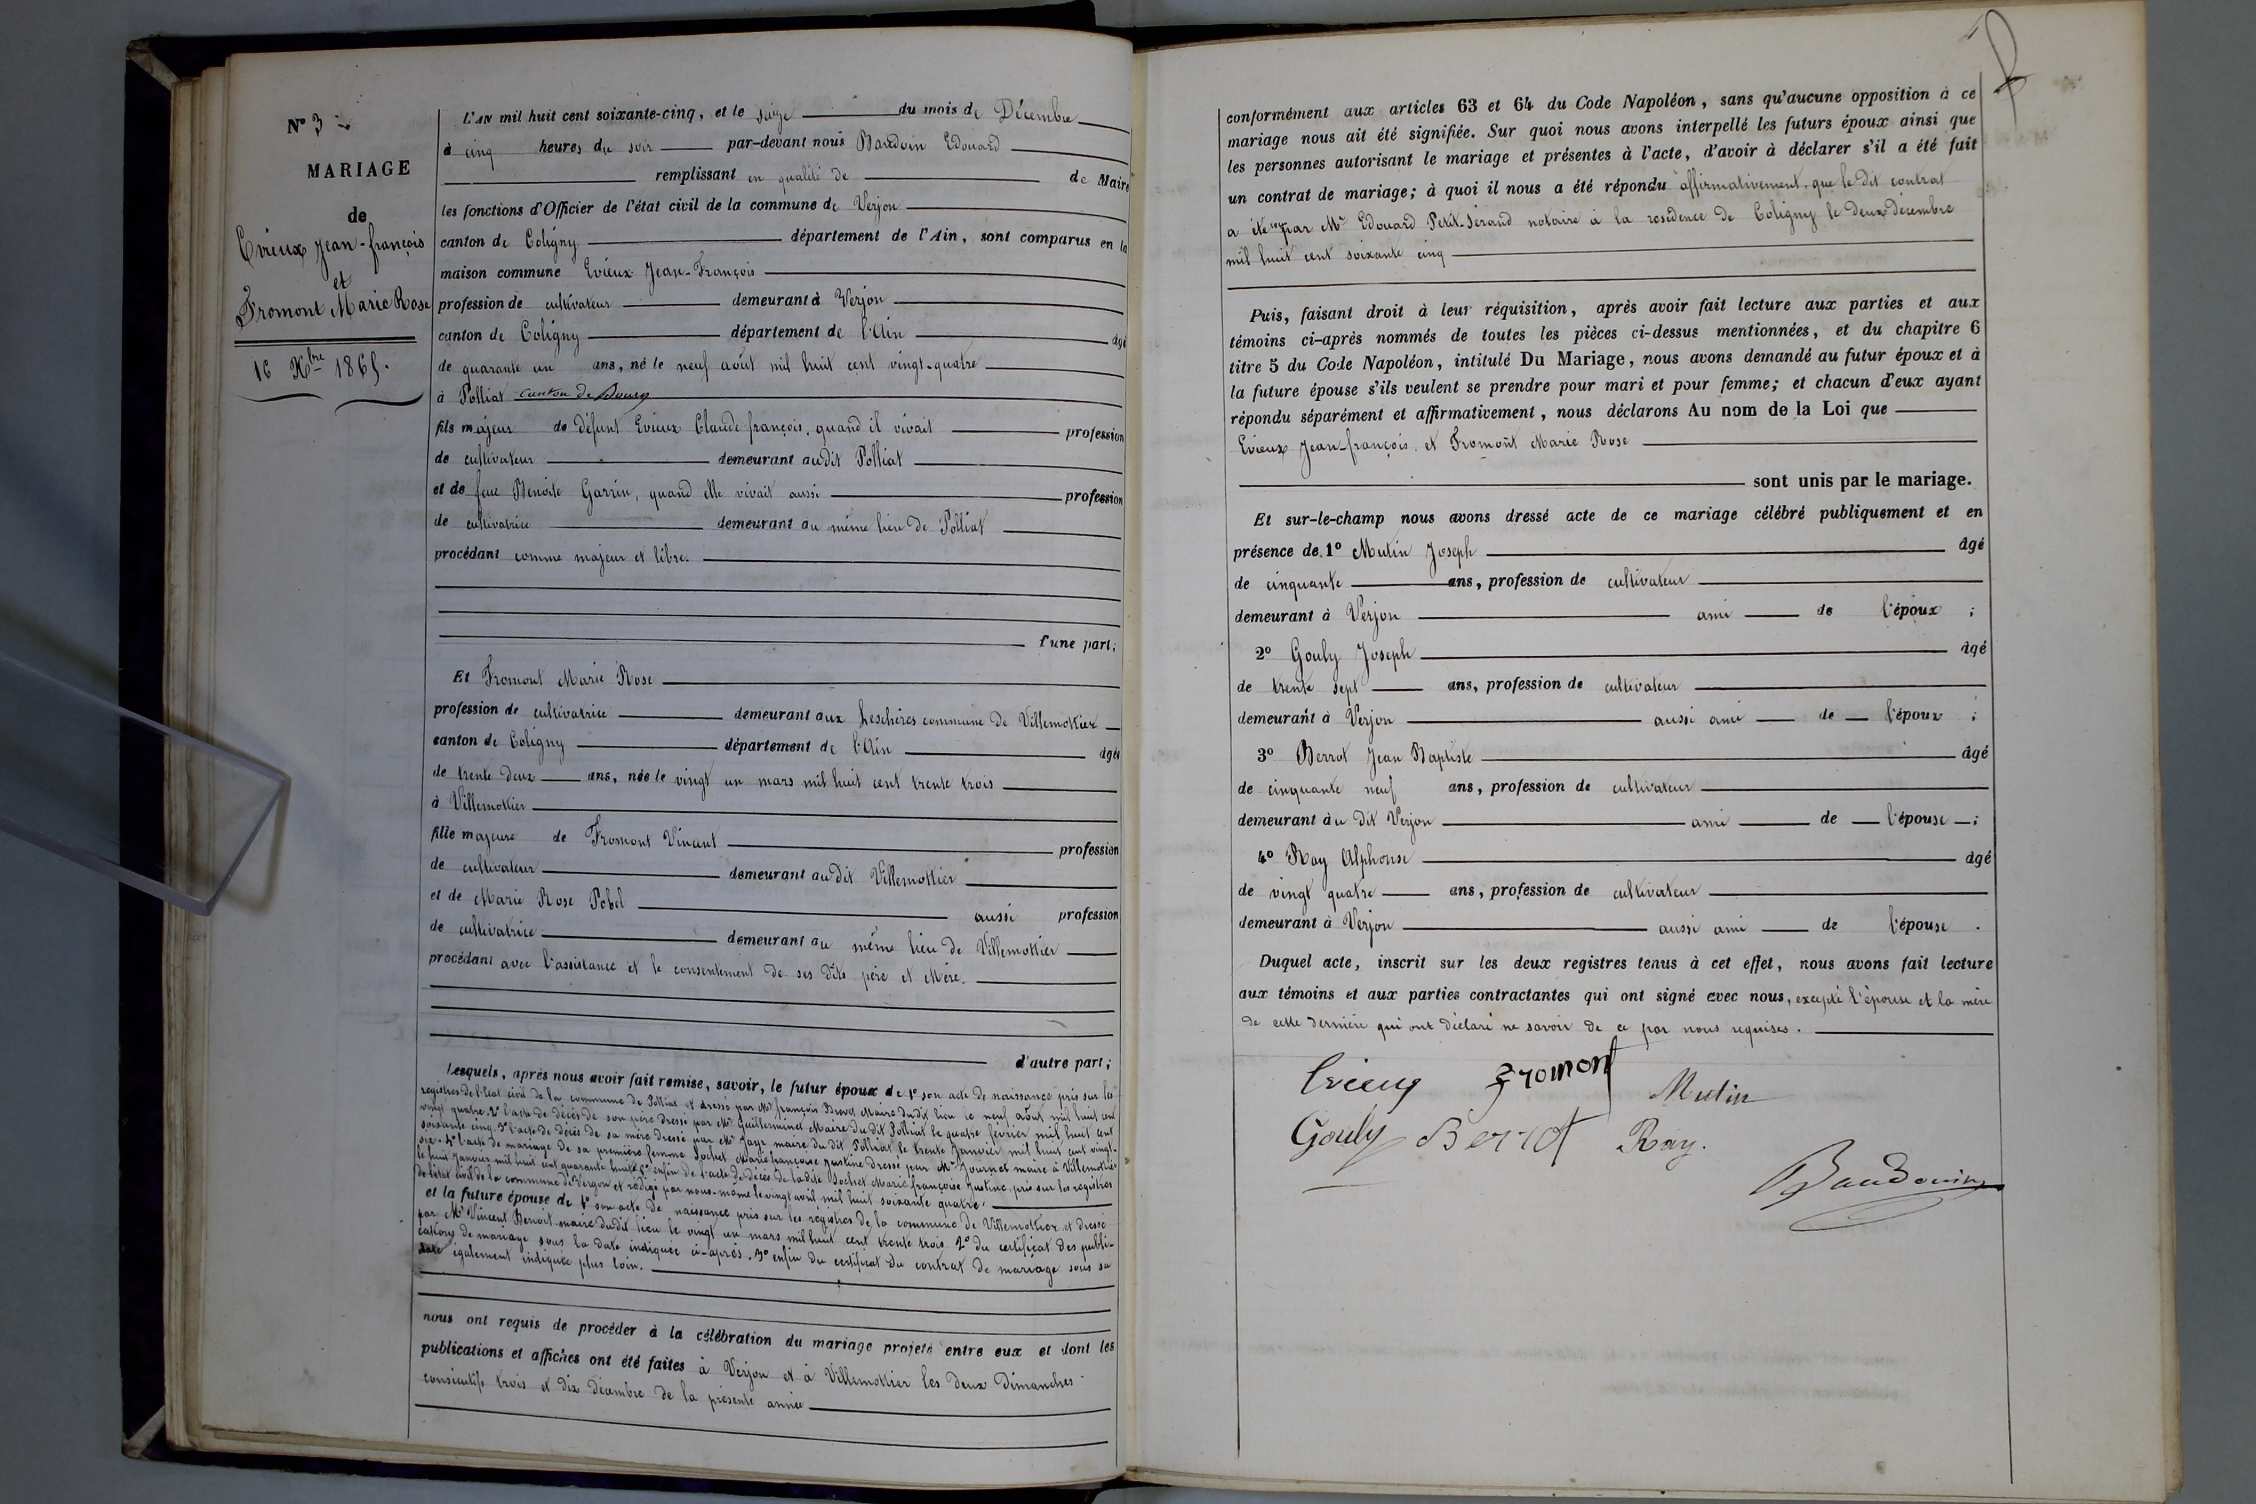 N° 3
MARIAGE
de
Evieux Jean-françois
et
Fromont Marie Rose
16 Xbre 1865.
L'AN mil huit cent soixante-cinq, et le seize du mois de Décembre
à cinq heures du soir par-devant nous Baudoin Edouard
remplissant en qualité de de Maire
les fonctions d'Officier de l'état civil de la commune de Verjon
canton de Coligny département de l'Ain, sont comparus en la
maison commune Evieux Jean-François
profession de cultivateur demeurant à Verjon
canton de Coligny département de l'Ain âgé
de quarante un ans, né le neuf août mil huit cent vingt-quatre
à Polliat canton de Bourg
fils majeur de défunt Evieux Claude françois, quand il vivait profession
de cultivateur demeurant audit Polliat
et de feue Benoite Garrin, quand elle vivait aussi profession
de cultivatrice demeurant au même lieu de Polliat
procédant comme majeur et libre.
d'une part;
Et Fromont Marie Rose
profession de cultivatrice demeurant aux Leschères commune de Villemottier
canton de Coligny département de l'Ain âgée
de trente deux ans, née le vingt un mars mil huit cent trente trois
à Villemottier
fille majeure de Fromont Vincent profession
de cultivateur demeurant audit Villemottier
et de Marie Rose Pobel aussi profession
de cultivatrice demeurant au même lieu de Villemottier
procédant avec l'assistance et le consentement de ses dits père et Mère.
d'autre part;
Lesquels, après nous avoir fait remise, savoir, le futur époux de 1° son acte de naissance pris sur les
registres de l'état civil de la commune de Polliat et dressé par Mr françois Maire dudit lieu le neuf août mil huit cent
vingt quatre. 2° l'acte de décès de son père dressé par Mr Guillerminet Maire du dit Polliat le quatre février mil huit cent
soixante cinq. 3° l'acte de décès de sa mère dressé par Mr Jayr maire du dit Polliat le trente Janvier mil huit cent vingt-
4° l'acte de mariage de sa première femme Sochet Marie françoise Justine dressé par Mr Journet maire à Villemottier
le huit Janvier mil huit cent quarante huit. 5° enfin de l'acte de décès de la dite Sochet Marie françoise Justine, pris sur les registres
de l'état civil de la commune de Verjon et rédigé par nous-même le vingt avril mil huit soixante quatre.
et la future épouse de 1° son acte de naissance pris sur les régistres de la commune de Villemottier et dressé
par Mr Vincent Benoit maire dudit lieu le vingt un mars mil huit cent trente trois. 2° du certificat des publi-
cations de mariage sous la date indiquée ci-après. 3° enfin du certificat du contrat de mariage sous sa
date également indiquée plus loin.
nous ont requis de procéder à la célébration du mariage projeté entre eux et dont les
publications et affiches ont été faites à Verjon et à Villemottier les deux dimanches
consécutifs trois et dix décembre de la présente année
conformément aux articles 63 et 64 du Code Napoléon, sans qu'aucune opposition à ce
mariage nous ait été signifiée. Sur quoi nous avons interpellé les futurs époux ainsi que
les personnes autorisant le mariage et présentes à l'acte, d'avoir à déclarer s'il a été fait
un contrat de mariage; à quoi il nous a été répondu affirmativement, que le dit contrat
a été reçu par Me Edouard Petit-Jérand notaire à la résidence de Coligny le deux décembre
mil huit cent soixante cinq
Puis, faisant droit à leur réquisition, après avoir fait lecture aux parties et aux
témoins ci-après nommés de toutes les pièces ci-dessus mentionnées, et du chapitre 6
titre 5 du Code Napoléon, intitulé Du Mariage, nous avons demandé au futur époux et à
la future épouse s'ils veulent se prendre pour mari et pour femme; et chacun d'eux ayant
répondu séparément et affirmativement, nous déclarons Au nom de la Loi que
Evieux Jean-françois et Fromont Marie Rose
sont unis par le mariage.
Et sur-le-champ nous avons dressé acte de ce mariage célébré publiquement et en
présence de 1° Mutin Joseph âgé
de cinquante ans, profession de cultivateur
demeurant à Verjon ami de l'époux ;
2° Gouly Joseph âgé
de trente sept ans, profession de cultivateur
demeurant à Verjon aussi ami de l'époux ;
3° Berrot Jean Baptiste âgé
de cinquante neuf ans, profession de cultivateur
demeurant au dit Verjon ami de l'épouse ;
4° Ray Alphonse âgé
de vingt quatre ans, profession de cultivateur
demeurant à Verjon aussi ami de l'épouse .
Duquel acte, inscrit sur les deux registres tenus à cet effet, nous avons fait lecture
aux témoins et aux parties contractantes qui ont signé avec nous, excepté l'épouse et la mère
de cette dernière qui ont déclaré ne savoir de ce par nous requises.
Evieux Fromont Mutin
Gouly Berrot Ray.
Baudouin